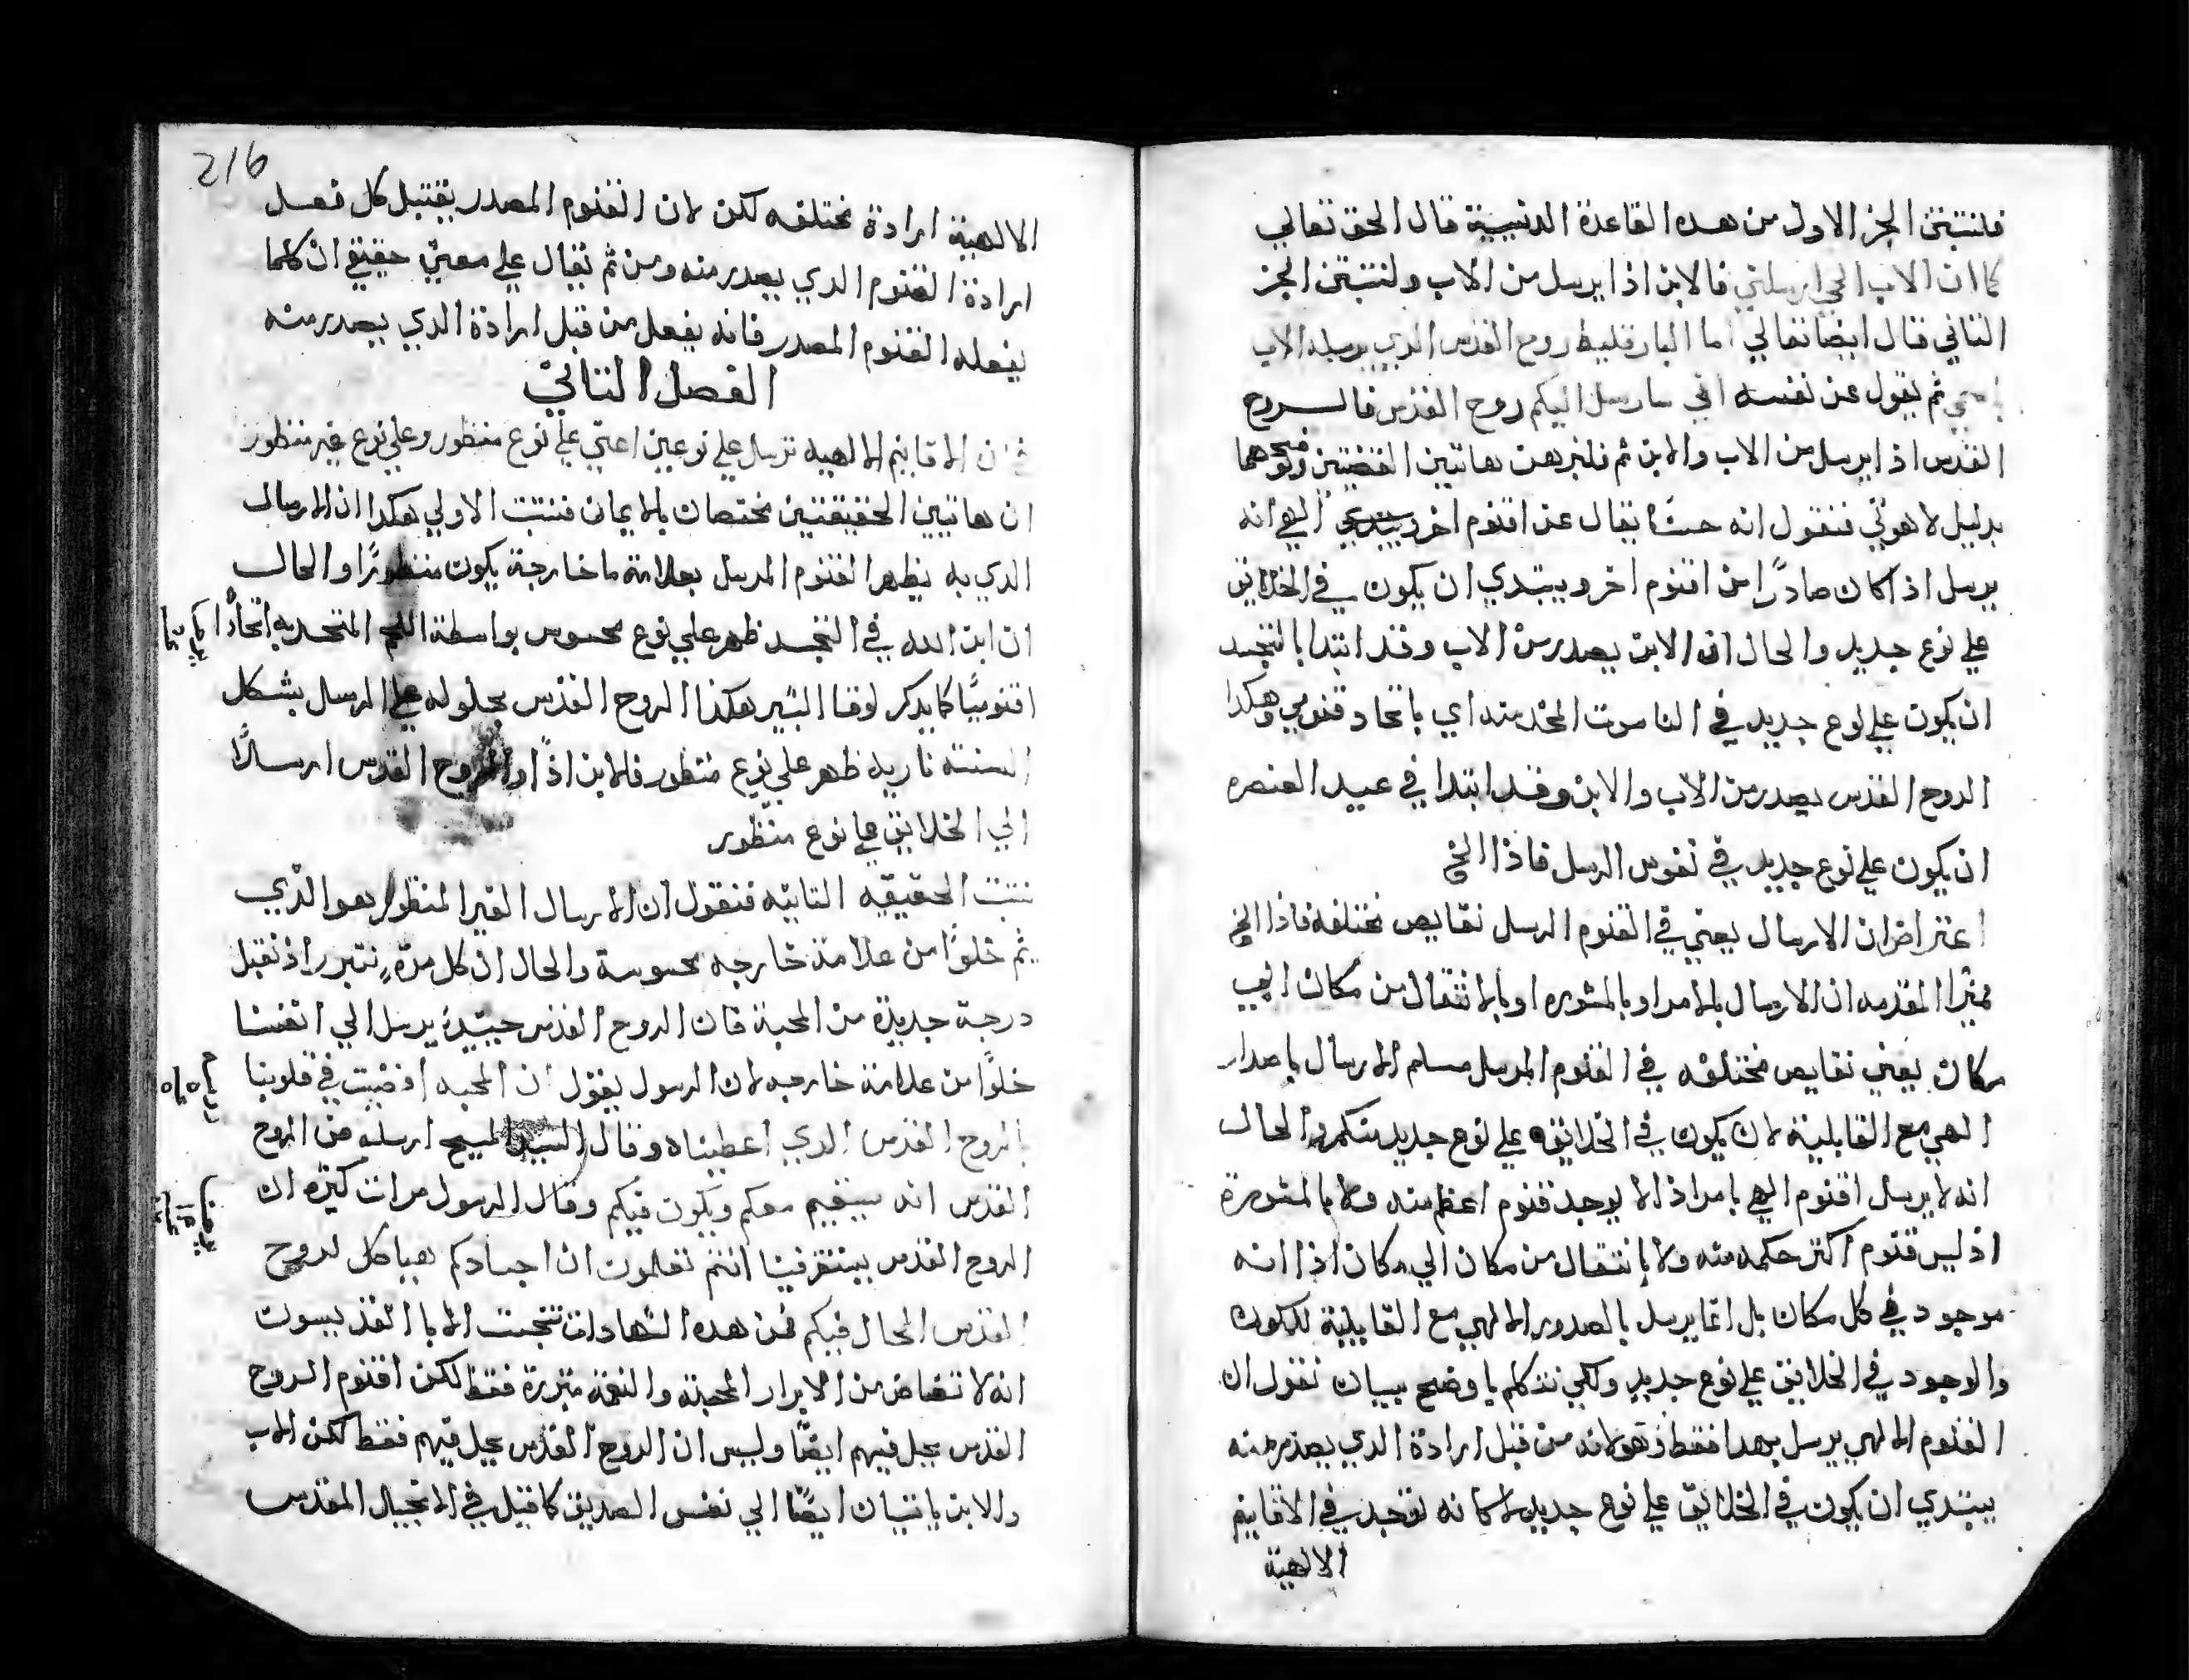 فلنتبتن الجز الاول من هده القاعدة الدينيية قال الحق تعالي
كما ان الاب الحي ارسلني فالابن اذا يرسل من الاب ولنتبتن الجز
التاني قال ايضا تعالي اما البارقليط روح القدس الدي يرسله الاب
باسمي تم يقول عن نفسه اني سارسل اليكم روح القدس فالروح
القدس اذا يرسل من الاب والابن تم فلنبرهن هاتين القضيتين
بدليل لاهوتي فنقول انه حسنًا يقال عن اقنوم اخر الهي انه
يرسل اذ اكان صادرًا من اقنوم اخر ويبتدي ان يكون في الخلايق
علي نوع جديد والحال ان الابن يصدر من الاب وقد ابتدا بالتجسد
ان يكون علي نوع جديد في الناسوت المخد منه اي باتحاد قنومي وهكدا
الروح القدس يصدر من الاب والابن وقد ابتدا في عيد العنصره
ان يكون علي نوع جديد في نفوس الرسل فاذا الخ
اعتراض ان الارسال يعني في القنوم المرسل نقايص مختلفة فاذا الخ
مميزا المقدمه ان الارسال بالامر او بالمشوره او بالانتقال من مكان الي
مكان يعني نقايص مختلفه في القنوم المرسل مسلم الارسال باصدار
الهي مع القابلية لان يكون في الخلايق علي نوع جديد منكر والحال
انه لا يرسل اقنوم الهي بامر اذ لا يوجد قنوم اعظم منه ولا بالمشورة
اذ ليس قنوم اكتر حكمه منه ولا بانتقال من مكان الي مكان اذ انه
موجود في كل مكان بل انما يرسل بالصدور الالهي مع القابلية للكون
والوجود في الخلايق علي نوع جديد ولكي نتكلم باوضح بيان نقول ان
القنوم الالهي يرسل بهدا فقط وهو لانه من قبل ارادة الدي يصدر منه
يبتدي ان يكون في الخلايق علي نوع جديد لا كانه توجد في الاقانيم
الالهية
216
الالهية ارادة مختلفه لكن لان القنوم المصدر يقتبل كل فعل
ارادة القنوم الدي يصدر منه ومن تم يقال علي معني حقيقي ان كلما
يفعله القنوم المصدر فانه يفعل من قبل ارادة الدي يصدر منه
الفصل التاني
ان الاقانيم الالهيه ترسل علي نوعين اعني علي نوع منظور وعلي نوع غير منظور
ان هاتين الحقيقتين مختصان بالايمان فنتبت الاولي هكدا ان الارسال
الدي به يظهر القنوم المرسل بعلامة ما خارجة يكون منظورًا والحال
ان ابن الله في التجسد ظهر علي نوع محسوس بواسطة اللحم المتحد به اتحادًا
اقنوميًا كما يدكر لوقا البشير هكدا الروح القدس بحلوله علي الرسل بشكل
السنة ناريه ظهر علي نوع منظور فالابن اذًا والروح القدس ارسلًا
الي الخلايق علي نوع منظور
نتبت الحقيقيه التانيه فنقول ان الارسال الغير المنظور هو الدي
يتم خلوًا من علامة خارجه محسوسة والحال ان كل مرة نتبرر اذ نقبل
درجة جديدة من المحبة فان الروح القدس حينيد يرسل الي انفسنا
خلوًا من علامة خارجه لان الرسول يقول ان المحبه افضيت في قلوبنا
بالروح القدس الدي اعطيناه وقال السيد المسيح ارسله عن الروح
القدس انه سيقيم معكم ويكون فيكم وقال الرسول مرات كتيره ان
الروح القدس يستقر فينا انتم تعلمون ان اجسادكم هياكل لروح
القدس الحال فيكم فمن هده الشهادات تنتجت الابا القديسون
انه لا تفاض من الابرار المحبة والنعمة مبررة فقط لكن اقنوم الروح
القدس يحل فيهم ايضًا وليس ان الروح القدس يحل فيهم فقط لكن الاب
والابن ياتيان ايضًا الي نفس الصديق كما قيل في الانجيل المقدس